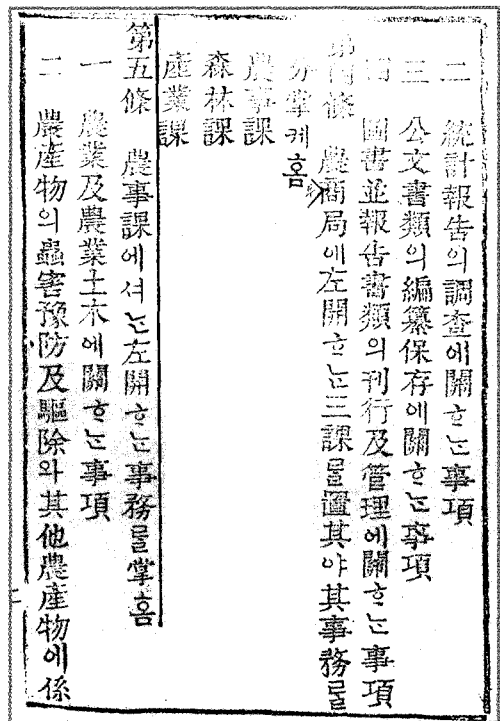 二 統計報告의調查에關ᄒᆞᄂᆞᆫ事項
三 公文書類의編纂保存에關ᄒᆞᄂᆞᆫ事項
四 圖書並報告書類의刊行及管理에關ᄒᆞᄂᆞᆫ事項
第四條 農商局에左開ᄒᆞᄂᆞᆫ三課ᄅᆞᆯ置ᄒᆞ야其事務ᄅᆞᆯ
分掌케홈
農事課
森林課
產業課
第五條 農事課에셔ᄂᆞᆫ左開ᄒᆞᄂᆞᆫ事務ᄅᆞᆯ掌홈
一 農業及農業土木에關ᄒᆞᄂᆞᆫ事項
二 農產物의蟲害豫防及驅除와其他農產物에係